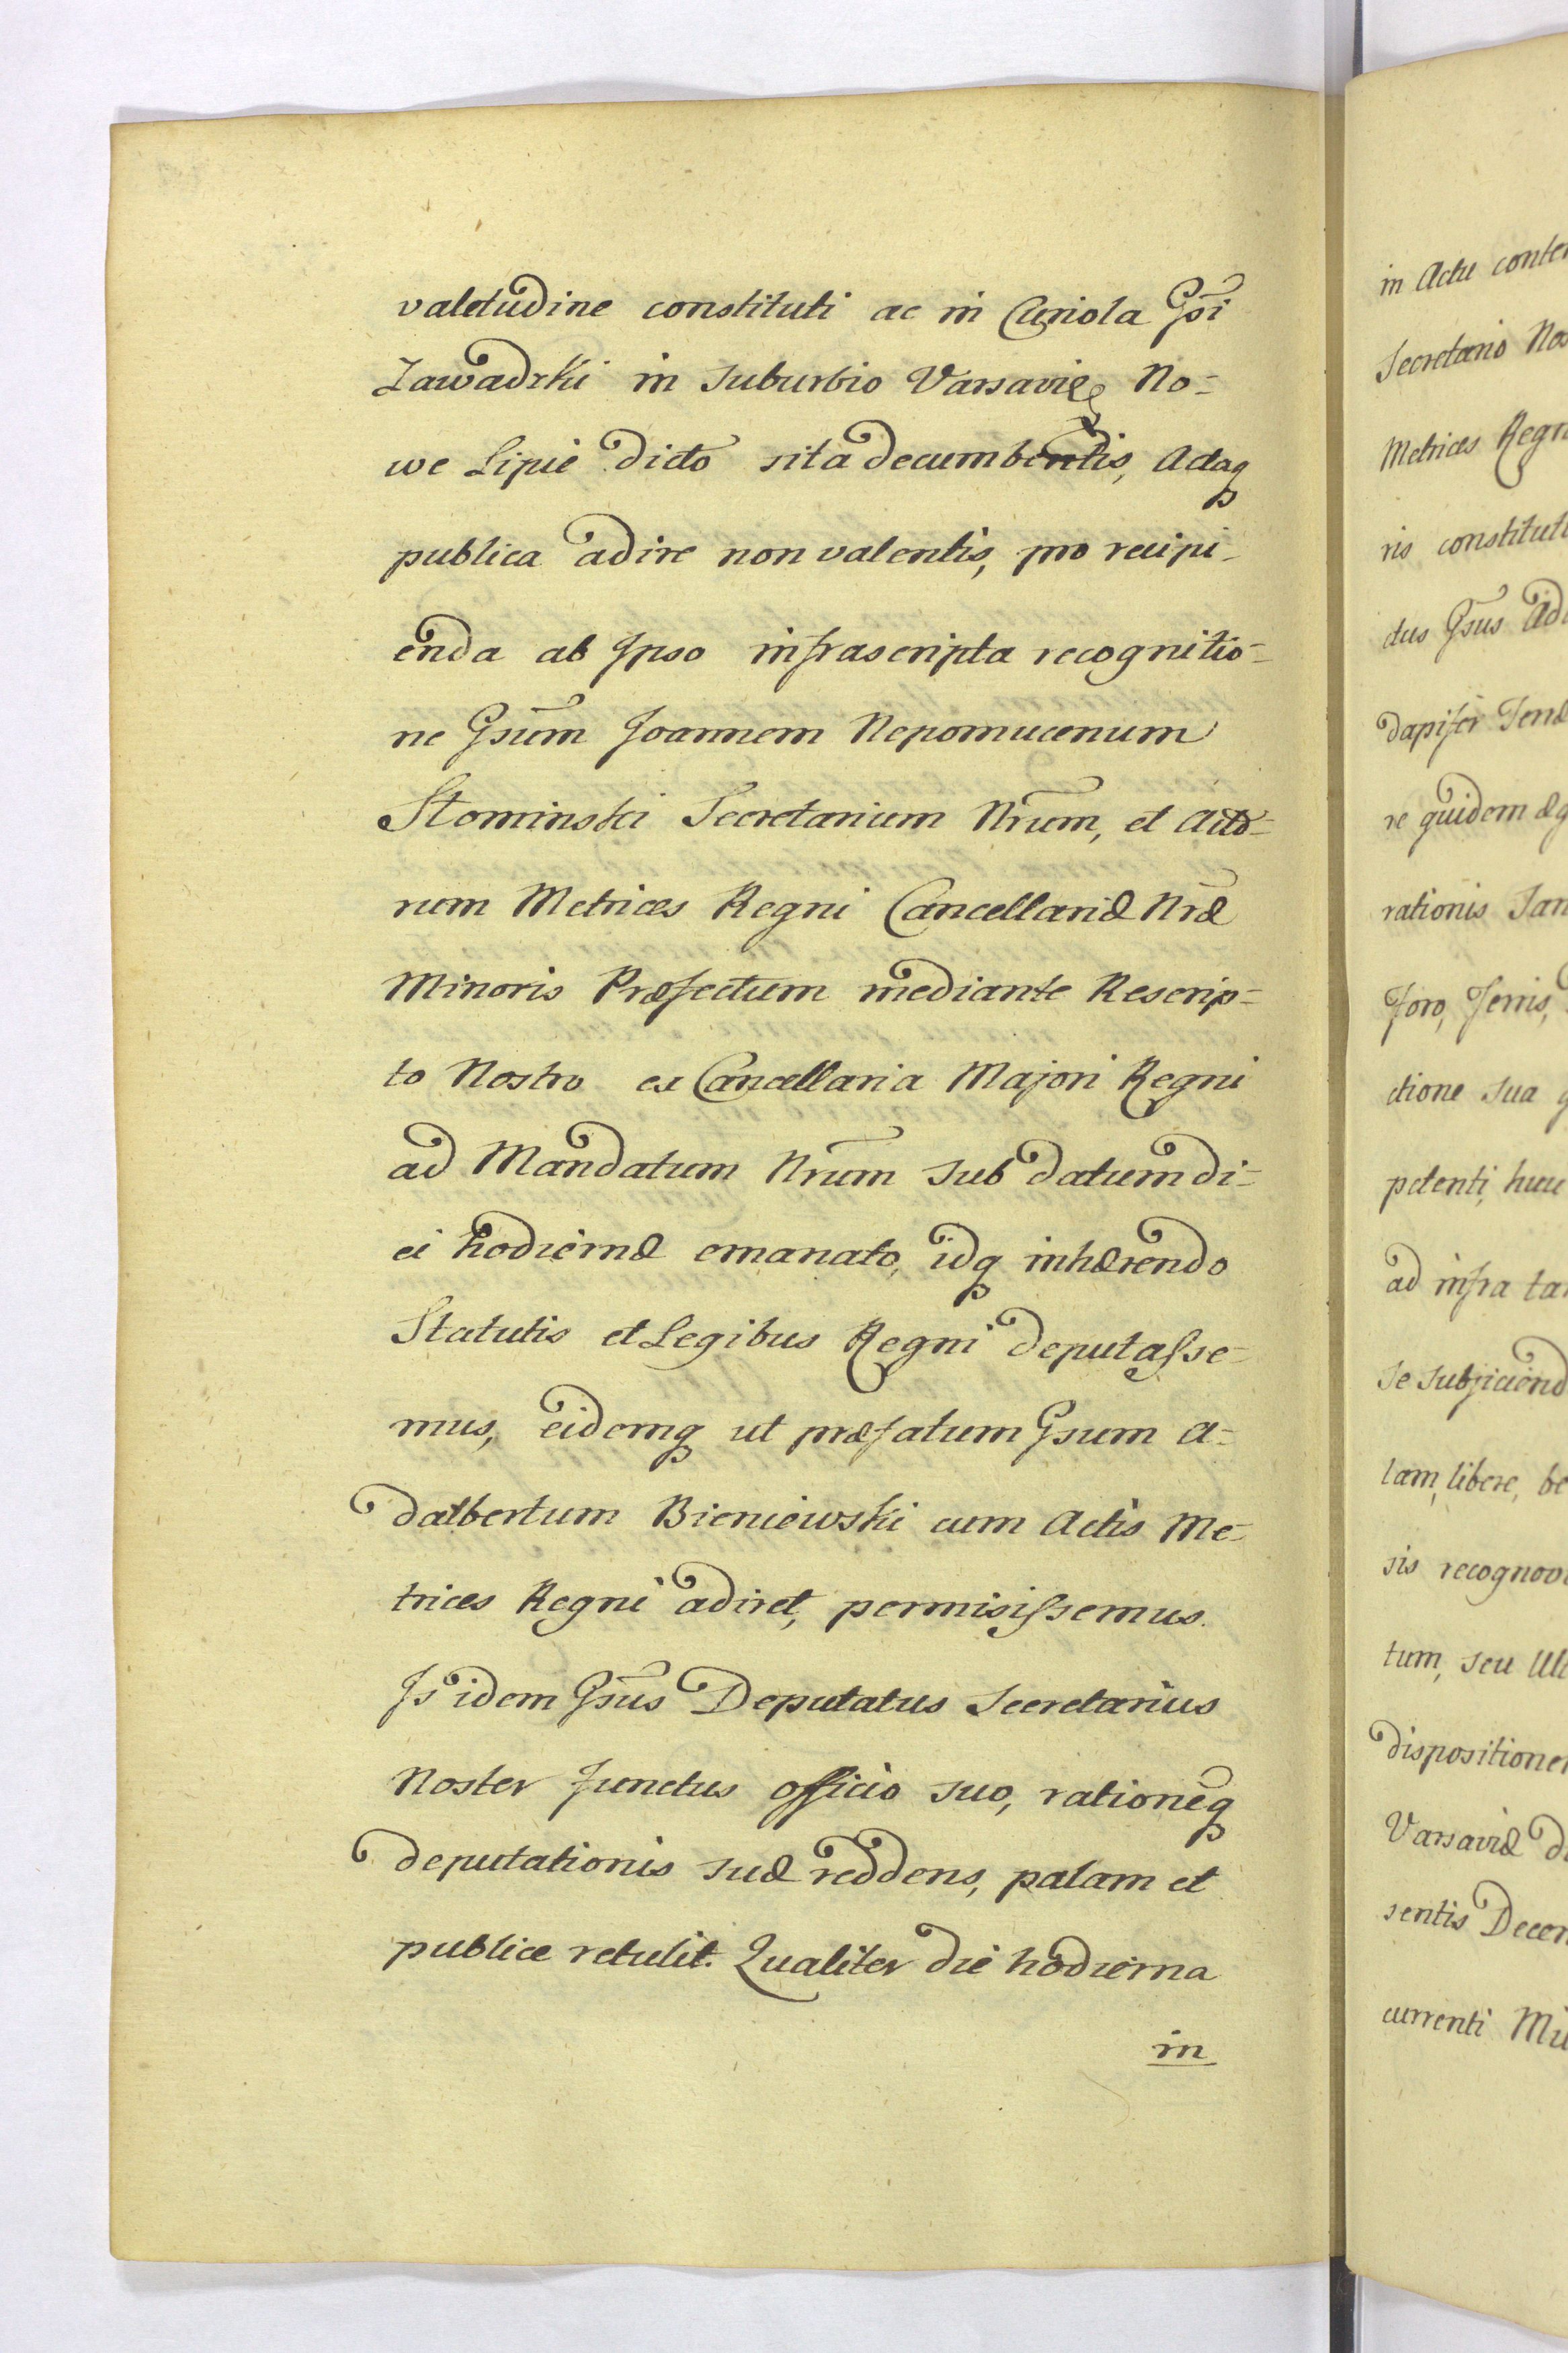 valetudine constituti ac in Curiola Gsi
Zawadzki in Suburbio Varsaviæ No=
we Lipie dicto sita decumbentis, Actaq
publica adire non valentis, pro recipi-
enda ab Ipso infrascripta recognitio=
ne Gsum Joannem Nepomucenum
Słominski Secretarium Nrum, et Acto=
rum Metrices Regni Cancellariæ Nræ
Minoris Præfectum mediante Rescrip=
to Nostro ex Cancellaria Majori Regni
ad Mandatum Nrum sub datum di=
ei hodiernæ emanato, idq inhærendo
Statutis et Legibus Regni deputasse-
mus, eidemq ut præfatum Gsum A=
dalbertum Bieniewski cum Actis Me-
trices Regni adiret, permisissemus.
Is idem Gsus Deputatus Secretarius
Noster functus officio suo, rationeq
deputationis suæ reddens, palam et
publice retulit. Qualiter die hodierna
in
in Actu conten
Secretario Nos
Metrices Regn
ris constituti
ctus Gsus Ad
dapifer Tend
re quidem æg
rationis San
Foro, Terris,
ctione sua q
petenti, huic
ad infra tan
se subjiciend
lam, libere, be
sis recognovi
tum, seu Ul
dispositionem
Varsaviæ di
sentis Decem
currenti Mil